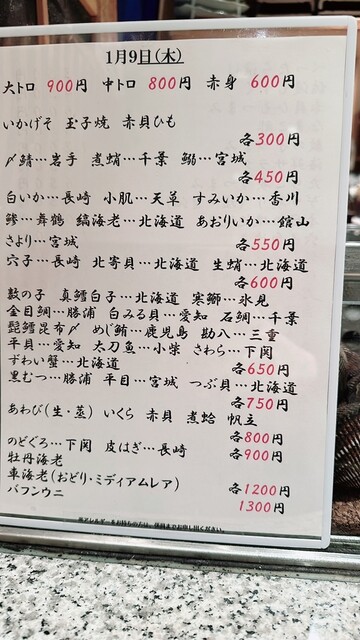 1月9日(木)
大トロ 900円 中トロ 800円 赤身 600円
いかげそ 玉子焼 赤貝ひも
各300円
〆鯖…岩手 煮蛸…千葉 鰯…宮城
各450円
白いか…長崎 小肌…天草 すみいか…香川
鯵…舞鶴 縞海老…北海道 あおりいか…館山
さより…宮城
各550円
穴子…長崎 北寄貝…北海道 生蛸…北海道
各600円
数の子 真鱈白子…北海道 寒鰤…氷見
金目鯛…勝浦 白みる貝…愛知 石鯛…千葉
髭鱈昆布〆 めじ鮪…鹿児島 勘八…三重
平貝…愛知 太刀魚…小柴 さわら…下関
ずわい蟹…北海道
各650円
黒むつ…勝浦 平目…宮城 つぶ貝…北海道
各750円
あわび(生・蒸) いくら 赤貝 煮蛤 帆立
各800円
のどぐろ…下関 皮はぎ…長崎
各900円
牡丹海老
車海老(おどり・ミディアムレア)
各1200円
バフンウニ
1300円